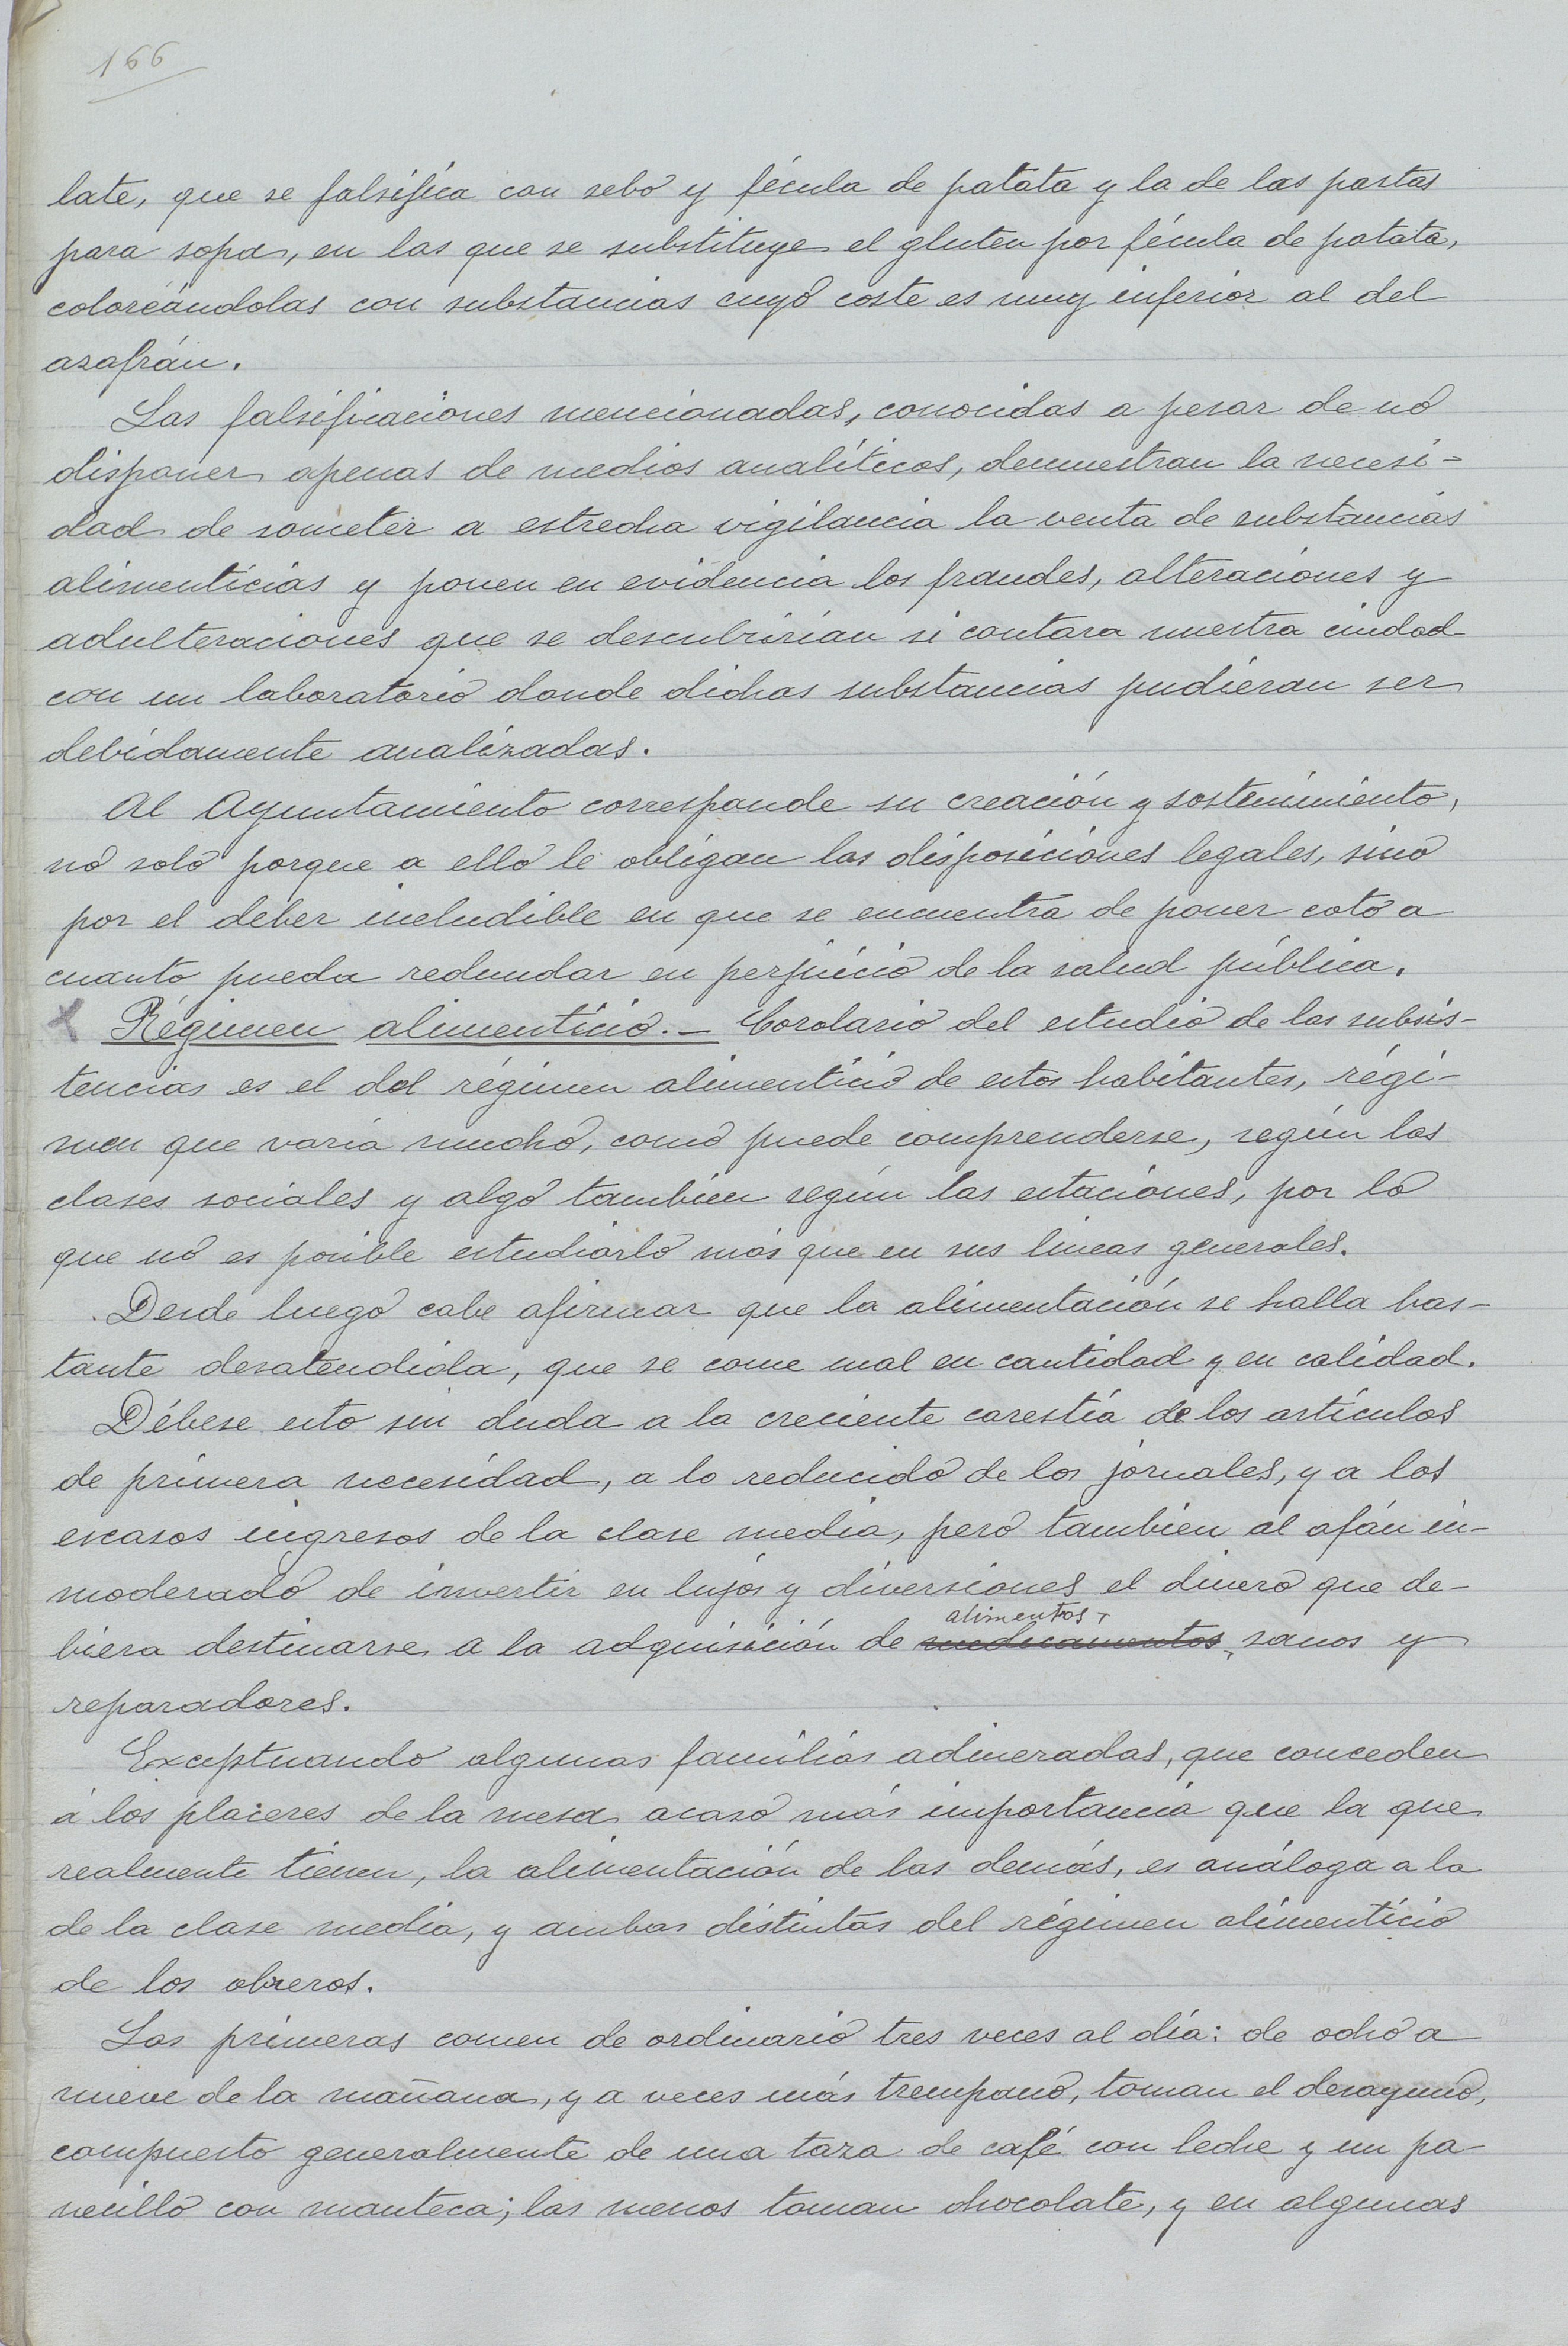 166
late, que se falsifica con sebo y fécula de patata y la de las pastas
para sopa, en las que se substituye el gluten por fécula de patata,
coloreándolas con substancias cuyo coste es muy inferior al del
azafrán.
Las falsificaciones mencionadas, conocidas a pesar de no
disponer apenas de medios analíticos, demuestran la necesi-
dad de someter a estrecha vigilancia la venta de substancias
alimenticias y ponen en evidencia los fraudes, alteraciones y
adulteraciones que se descubrirían si contara nuestra ciudad
con un laboratorio donde dichas substancias pudieran ser
debidamente analizadas.
Al Ayuntamiento corresponde su creación y sostenimiento,
no solo porque a ello le obligan las disposiciones legales, sino
por el deber ineludible en que se encuentra de poner coto a
cuanto pueda redundar en perjuicio de la salud pública.
Régimen alimenticio.- Corolario del estudio de las subsis-
tencias es el del régimen alimenticio de estos habitantes, régi-
men que varía mucho, como puede comprenderse, según las
clases sociales y algo también según las estaciones, por lo
que no es posible estudiarlo más que en sus líneas generales.
Desde luego cabe afirmar que la alimentación se halla bas-
tante desatendida, que se come mal en cantidad y en calidad.
Débese esto sin duda a la creciente carestía de los artículos
de primera necesidad, a lo reducido de los jornales, y a los
escasos ingresos de la clase media, pero también al afán in-
moderado de invertir en lujos y diversiones el dinero que de-
alimentos
biera destinarse a la adquisición de medicamentos, sanos y
reparadores.
Exceptuando algunas familias adineradas, que conceden
á los placeres de la mesa acaso más importancia que la que
realmente tienen, la alimentación de las demás, es análoga a la
de la clase media, y ambas distintas del régimen alimenticio
de los obreros.
Las primeras comen de ordinario tres veces al día: de ocho a
nueve de la mañana, y a veces más trempano, toman el desayuno,
compuesto generalmente de una taza de café con leche y un pa-
necillo con manteca; las menos toman chocolate, y en algunas